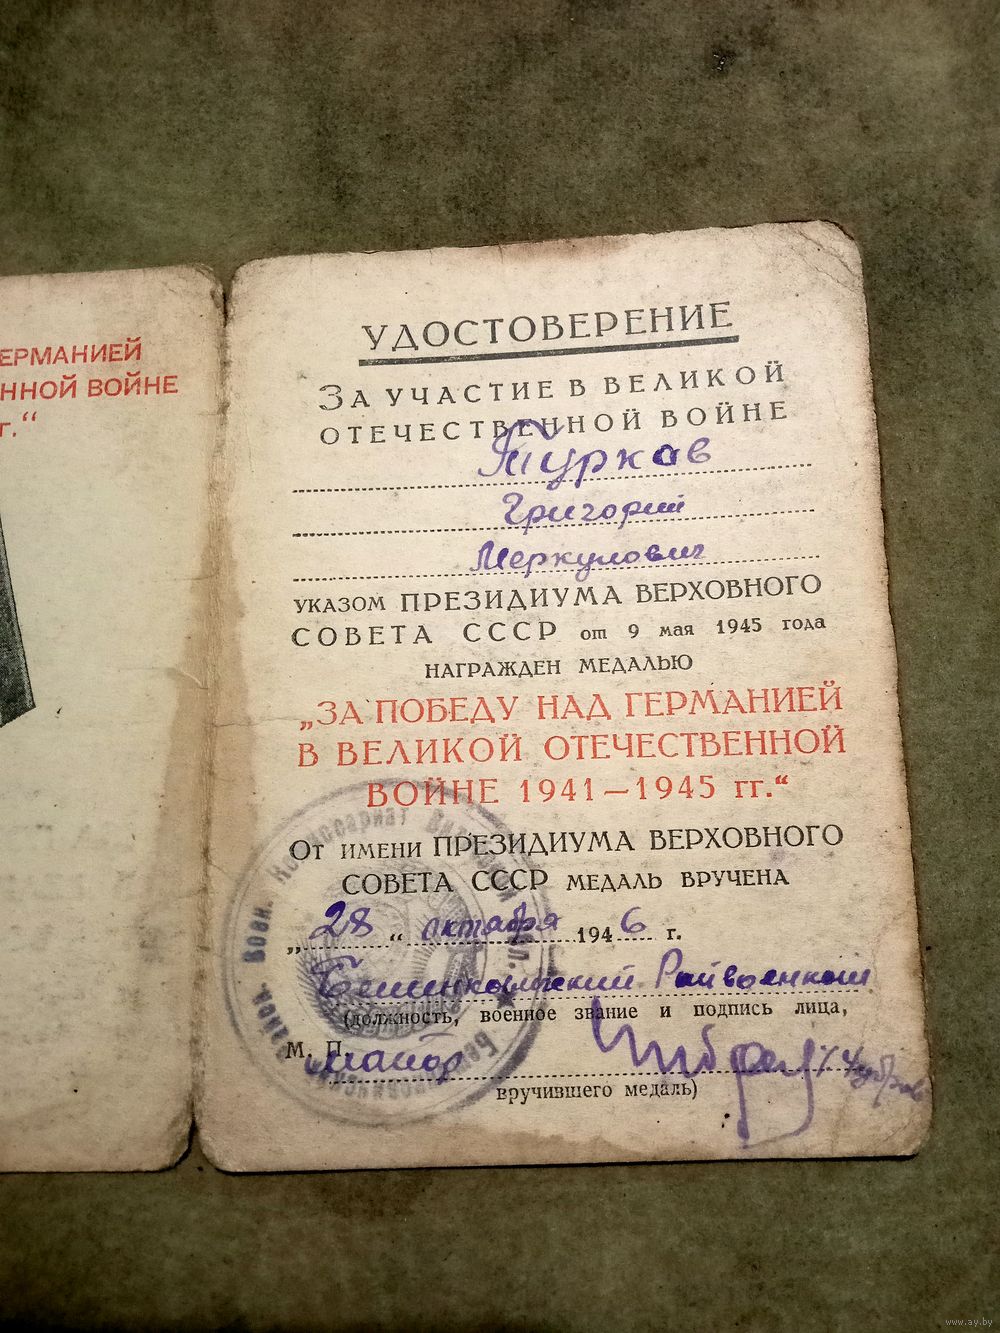 ЕРМАНИЕЙ
ННОЙ ВОЙНЕ
г.“
УДОСТОВЕРЕНИЕ
ЗА УЧАСТИЕ В ВЕЛИКОЙ
ОТЕЧЕСТВЕННОЙ ВОЙНЕ
Турков
Григорий
Меркулович
УКАЗОМ ПРЕЗИДИУМА ВЕРХОВНОГО
СОВЕТА СССР от 9 мая 1945 года
НАГРАЖДЕН МЕДАЛЬЮ
„ЗА ПОБЕДУ НАД ГЕРМАНИЕЙ
В ВЕЛИКОЙ ОТЕЧЕСТВЕННОЙ
ВОЙНЕ 1941—1945 гг.“
ОТ ИМЕНИ ПРЕЗИДИУМА ВЕРХОВНОГО
СОВЕТА СССР МЕДАЛЬ ВРУЧЕНА
„28“ октября 1946 г.
Бешенковичский Райвоенком
(должность, военное звание и подпись лица,
М. П. майор
вручившего медаль)
Воен. Комиссариат
www.ay.by